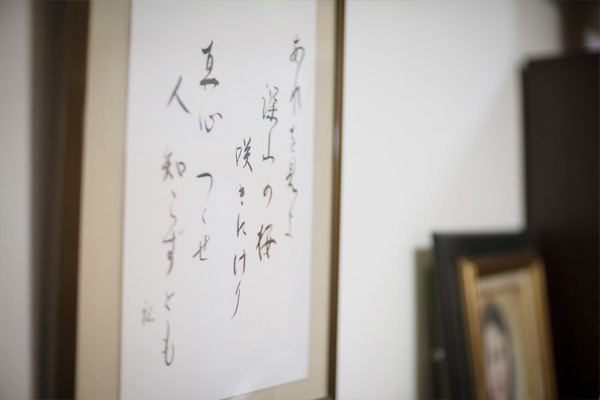 あれを見よ
深山の桜
咲きにけり
真心つくせ
人知らずとも